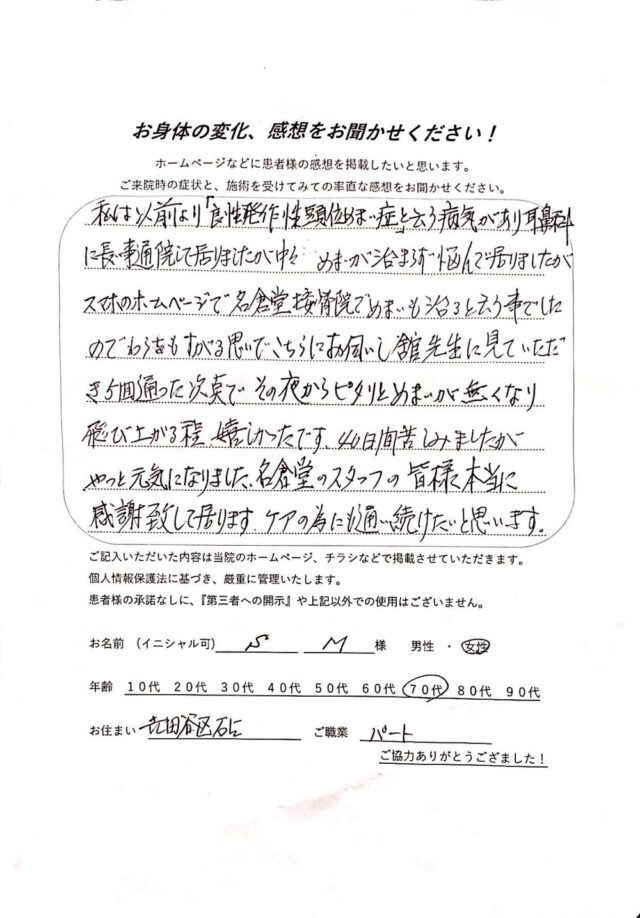 お身体の変化、感想をお聞かせください！
ホームページなどに患者様の感想を掲載したいと思います。
ご来院時の症状と、施術を受けてみての率直な感想をお聞かせください。
私は以前より「良性発作性頭位めまい症」と云う病気があり耳鼻科
に長い事通院して居りましたが中々 めまいが治まらず悩んで居りましたが
スマホのホームページで名倉堂接骨院でめまいも治ると云う事でした
のでわらをもすがる思いでこちらにお伺いし舘先生に見ていただ
き5回通った次点で その夜からピタリとめまいが無くなり
飛び上がる程、嬉しかったです。40日間苦しみましたが
やっと元気になりました、名倉堂のスタッフの皆様本当に
感謝致して居ります。ケアの為にも通い続けたいと思います。
ご記入いただいた内容は当院のホームページ、チラシなどで掲載させていただきます。
個人情報保護法に基づき、厳重に管理いたします。
患者様の承諾なしに、『第三者への開示』や上記以外での使用はございません。
お名前 （イニシャル可） S M 様 男性 ・ 女性
年齢 10代 20代 30代 40代 50代 60代 70代 80代 90代
お住まい 田谷区 ご職業 パート
ご協力ありがとうござました！